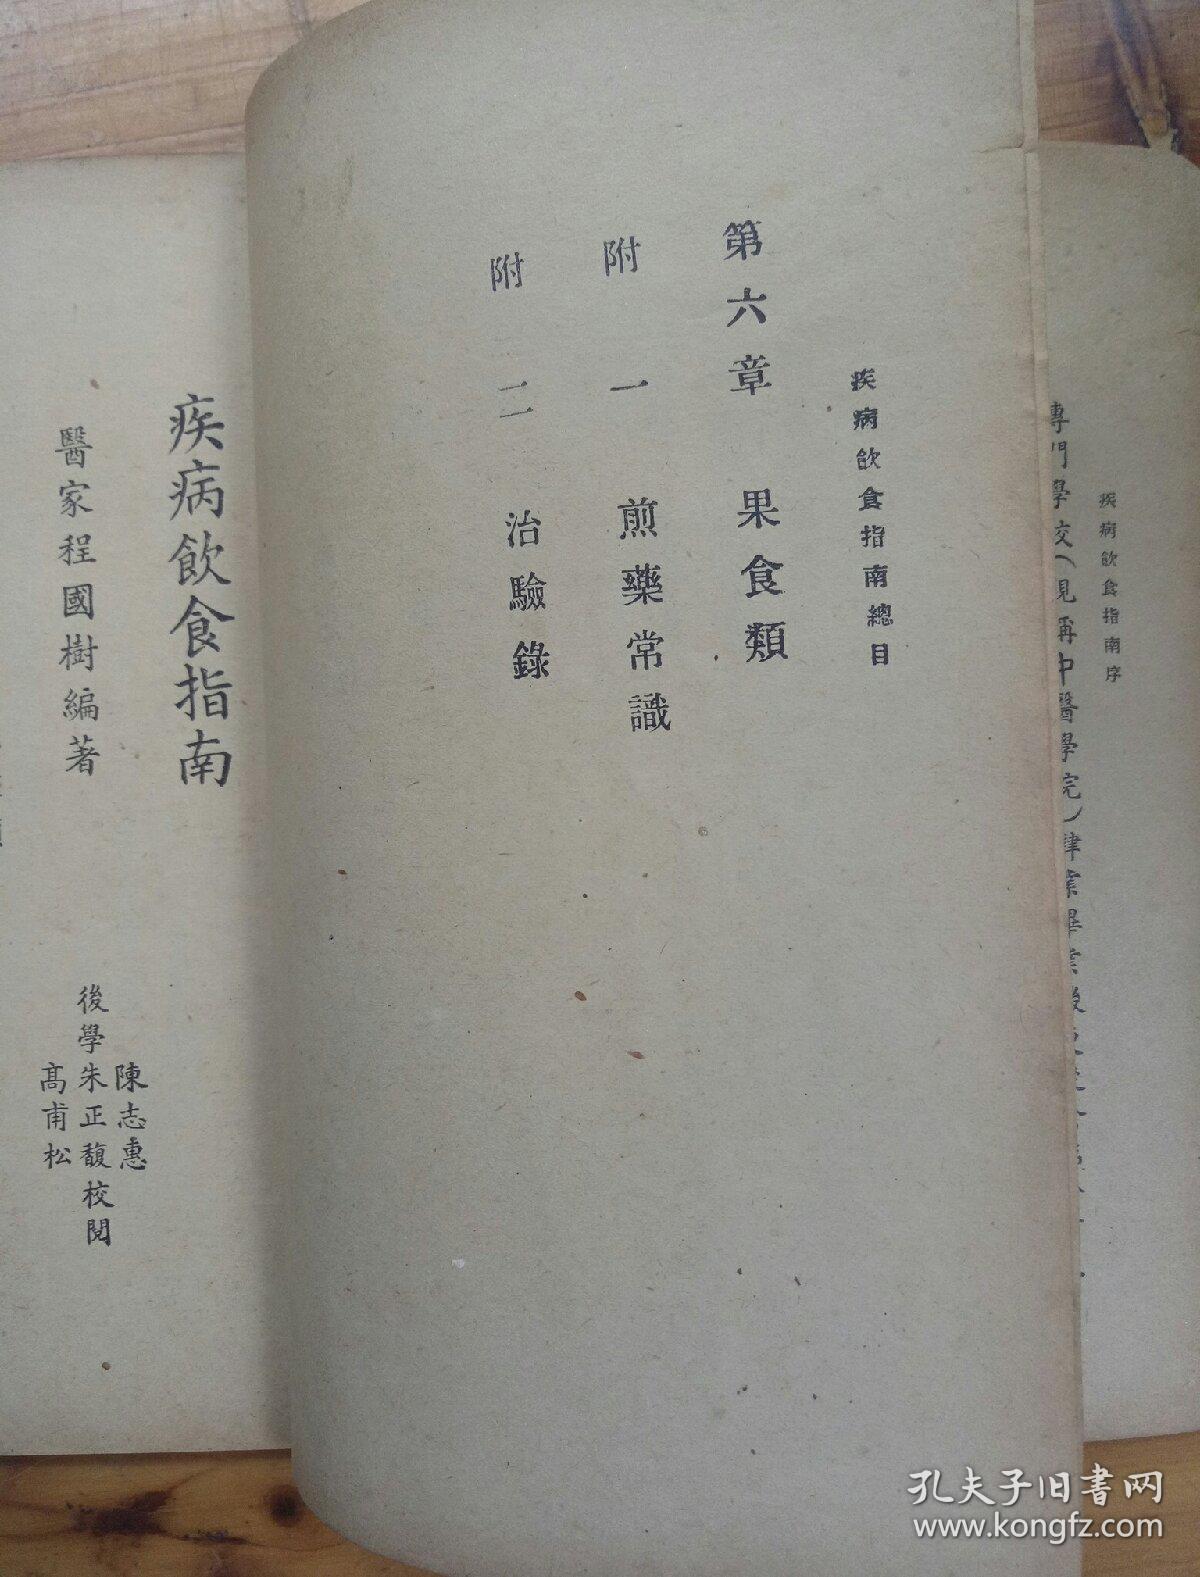 疾病飲食指南序
專門學校（現稱中醫學院）肄業畢業後
疾病飲食指南總目
第六章 果食類
附一 煎藥常識
附二 治驗錄
疾病飲食指南
醫家程國樹編著
陳志惠
後學朱正馥校閱
高甫松
孔夫子旧书网
www.kongfz.com